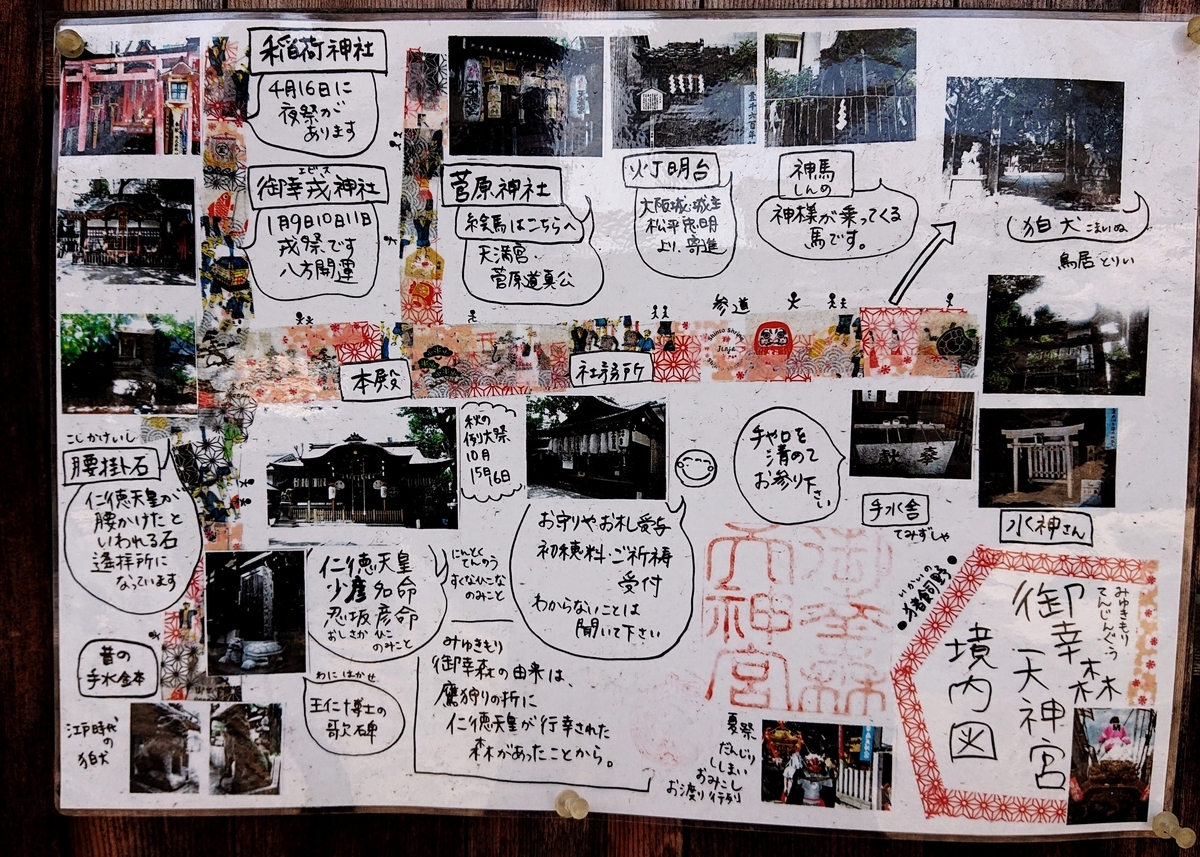 稲荷神社
4月16日に
夜祭が
あります
エビス
御幸戎神社
1月9日10日11日
戎祭です
八方開運
菅原神社
絵馬はこちらへ
天満宮・
菅原道真公
灯明台
大阪城・城主
松平忠明
より、寄進
神馬
しんめ
神様が乗ってくる
馬です。
狛犬 こまいぬ
鳥居 とりい
参道
本殿
社務所
秋の
例大祭
10月
15日16日
手や口を
清めて
お参り下さい
手水舎
てみずしゃ
水神さん
こしかけいし
腰掛ト石
仁徳天皇が
腰かけたと
いわれる石
遙拝所に
なっています
仁徳天皇
少彦名命
忍坂彦命
おしさかひこ
のみこと
にんとく
てんのう
すくなひこな
のみこと
お守りやお札受与
初穂料・ご祈祷
受付
わからないことは
聞いて下さい
昔の
手水鉢
江戸時代
の
狛犬
わにはかせ
王仁博士の
歌碑
みゆきもり
御幸森の由来は、
鷹狩りの折に
仁徳天皇が行幸された
森があったことから。
御幸森
天神宮
夏祭
だんじり
ししまい
おみこし
お渡り行列
いかいの
●猪飼野●
みゆきもり
てんじんぐう
御幸森
天神宮
境内図